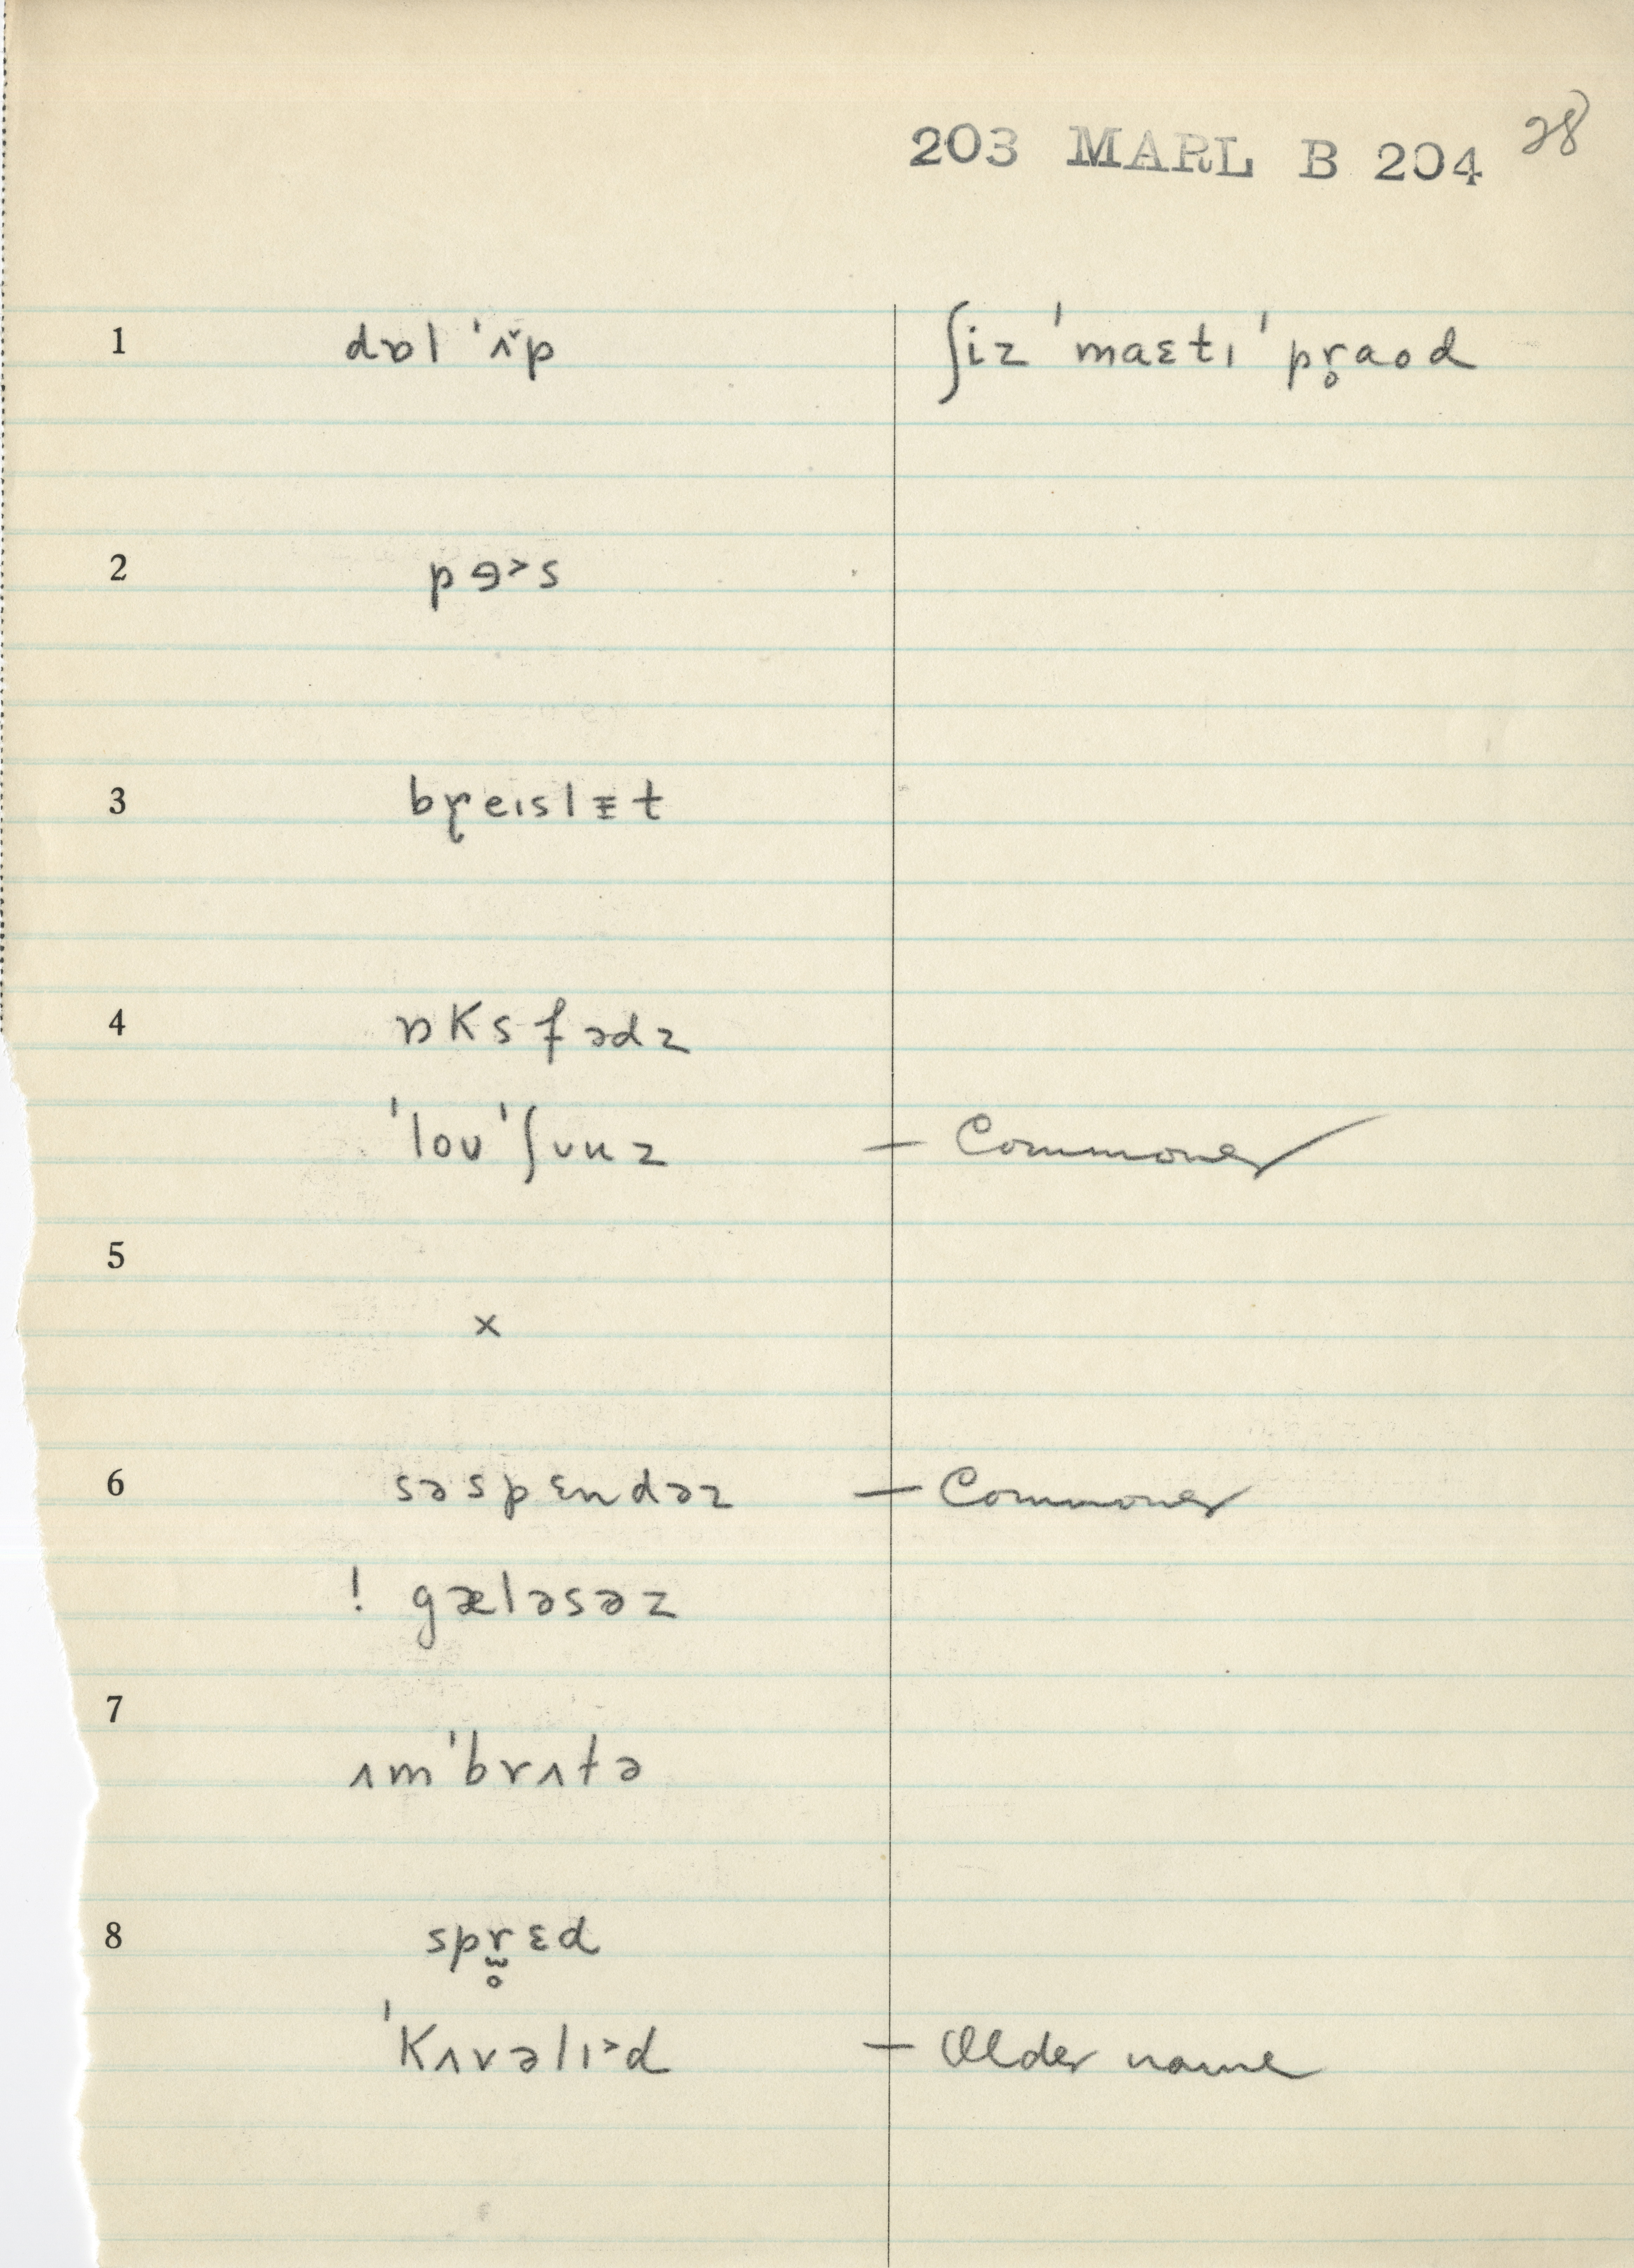 203 MARL B 204 28
1 dɒl ˈʌ̌p ʃiz ˈmaɛtɪ ˈpr̥aod
2 pɘ˃s
3 breɪslɪ̵t
4 ɒKsfədz
ˈloʊˈʃuuz — Commoner
5
×
6 səspɛndəz — Commoner
! gæləsəz
7 ʌmˈbrʌtə
8 spr̥ɛd
ˈKʌvəlɪ˃d — Older name